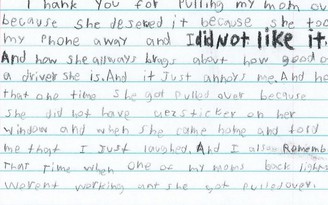 Thank You for Pulling my mom ov
because she desered it because she too
my Phone away and I did Not like it.
And how she allways brags about how good of
a driver she is. And it Just annoys me. And he
that one time she got Pulled over because
she did not have uerzsticker on her
window and when she came home and told
me that I Just laughed. And I also Rememb
That Time when one of my moms back lights
werent working ant she got Pulled over.